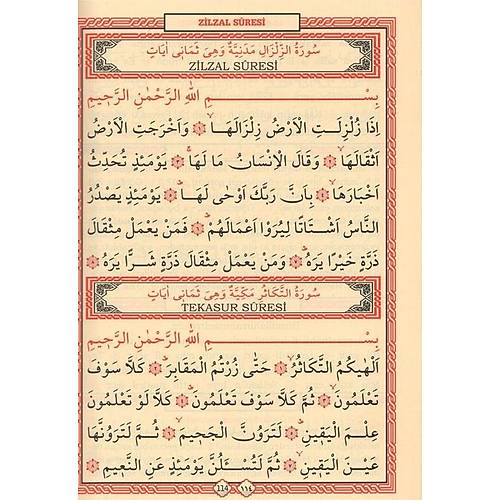 ZİLZAL SÛRESİ
سُورَةُ الزِّلْزَالِ مَدَنِيَّةٌ وَهِىَ ثَمَانِى اٰيَاتٍ
ZİLZAL SÛRESİ
بِسْـــــــمِ اللّٰهِ الرَّحْمٰنِ الرَّحِيمِ
اِذَا زُلْزِلَتِ الْاَرْضُ زِلْزَالَهَا ﴿١﴾ وَاَخْرَجَتِ الْاَرْضُ
اَثْقَالَهَا ﴿٢﴾ وَقَالَ الْاِنْسَانُ مَا لَهَا ﴿٣﴾ يَوْمَئِذٍ تُحَدِّثُ
اَخْبَارَهَا ﴿٤﴾ بِاَنَّ رَبَّكَ اَوْحٰى لَهَا ﴿٥﴾ يَوْمَئِذٍ يَصْدُرُ
النَّاسُ اَشْتَاتًا لِيُرَوْا اَعْمَالَهُمْ ﴿٦﴾ فَمَنْ يَعْمَلْ مِثْقَالَ
ذَرَّةٍ خَيْرًا يَرَهُ ﴿٧﴾ وَمَنْ يَعْمَلْ مِثْقَالَ ذَرَّةٍ شَرًّا يَرَهُ ﴿٨﴾
سُورَةُ التَّكَاثُرِ مَكِّيَّةٌ وَهِىَ ثَمَانِى اٰيَاتٍ
TEKASUR SÛRESİ
بِسْـــــــمِ اللّٰهِ الرَّحْمٰنِ الرَّحِيمِ
اَلْهٰيكُمُ التَّكَاثُرُ ﴿١﴾ حَتّٰى زُرْتُمُ الْمَقَابِرَ ﴿٢﴾ كَلَّا سَوْفَ
تَعْلَمُونَ ﴿٣﴾ ثُمَّ كَلَّا سَوْفَ تَعْلَمُونَ ﴿٤﴾ كَلَّا لَوْ تَعْلَمُونَ
عِلْمَ الْيَقِينِ ﴿٥﴾ لَتَرَوُنَّ الْجَحِيمَ ﴿٦﴾ ثُمَّ لَتَرَوُنَّهَا
عَيْنَ الْيَقِينِ ﴿٧﴾ ثُمَّ لَتُسْـَٔلُنَّ يَوْمَئِذٍ عَنِ النَّعِيمِ ﴿٨﴾
114 ١١٤